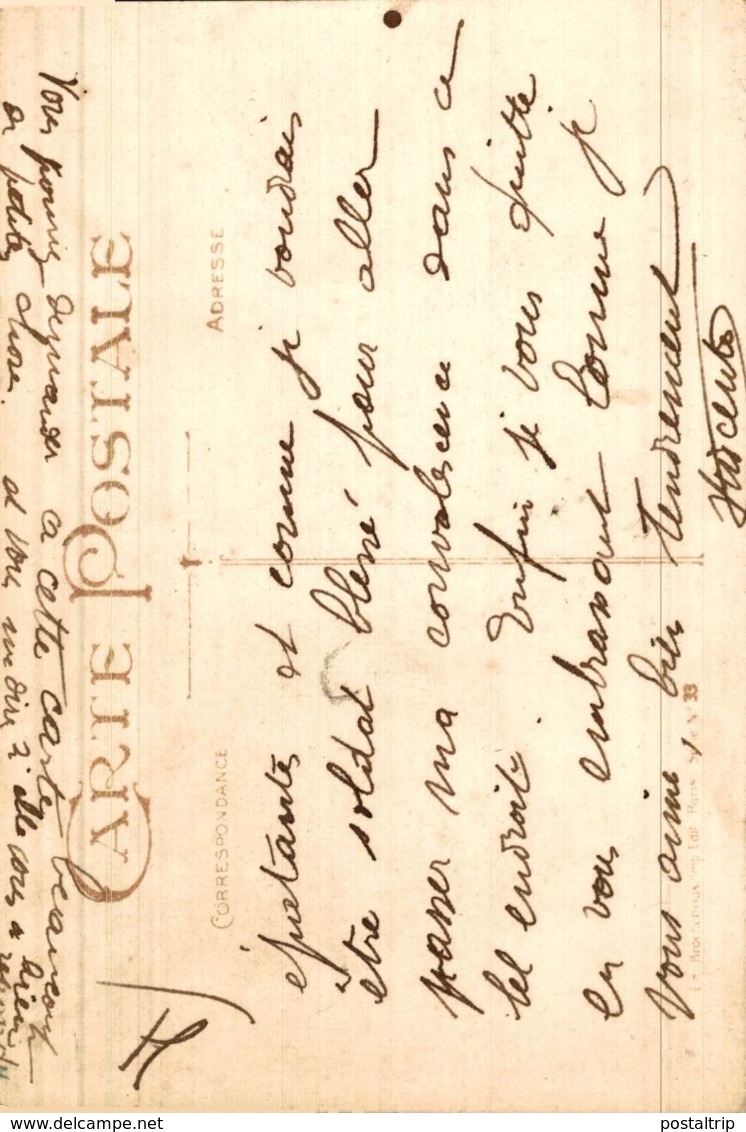 CARTE POSTALE
CORRESPONDANCE
ADRESSE
épatante, et comme je voudrais
être soldat blessé pour aller
passer ma convalescence dans ce
bel endroit. Enfin je vous quitte
en vous embrassant comme je
vous aime, bien tendrement
Vous pouvez demander à cette carte beaucoup
de petites choses. et vous me dire si elle vous a bien
répondu
Paris
N° 33
postaltrip
www.delcampe.net